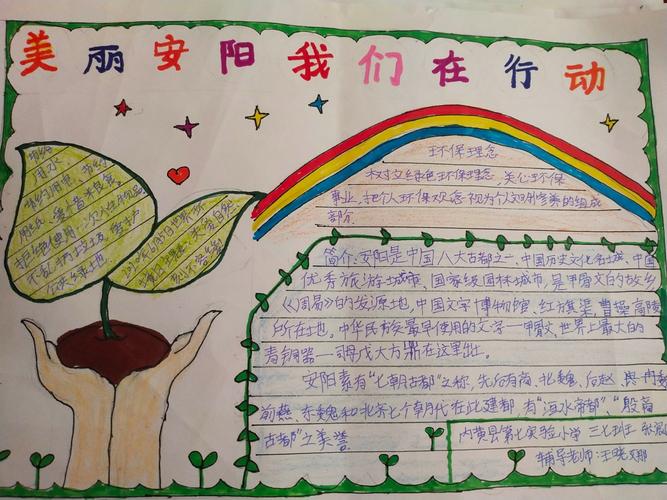 美丽安阳我们在行动
节约
用水
节约用电 节约
服氏,爱惜粮食,
拒绝使用一次性物品
不乱扔垃圾 爱护
公共绿地
环保理念
树立绿色环保理念,关心环保
事业,把个人环保观念视为个人文明修养的组成
部分
简介:安阳是中国八大古都之一,中国历史文化名城,中国
优秀旅游城市、国家级园林城市,是甲骨文的故乡
《周易》的发源地,中国文字博物馆、红旗渠,曹操高陵
所在地,中华民族最早使用的文字一甲骨文,世界上最大的
青铜器一司母戊大方鼎在这里出。
安阳素有"七朝古都"之称,先后有商、北魏、后赵、冉魏
前燕、东魏和北齐七个朝代在此建都,有"洹水帝都"、"殷商
古都"之美誉
内黄县第七实验小学 三七班
辅导老师:王晓娜